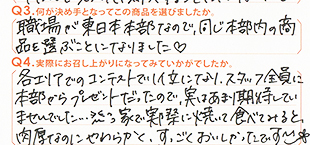 Q3.何が決め手となってこの商品を選びましたか。
職場が東日本本部なので、同じ本部内の商
品を選ぶことになりました♡
Q4.実際にお召し上がりになってみていかがでしたか。
各エリアでのコンテストで1位になり、スタッフ全員に
本部からプレゼントだったので、実はあまり期待してい
ませんでした…が、家で実際に焼いて食べてみると、
肉厚なのにやわらかく、すっごくおいしかったです〜